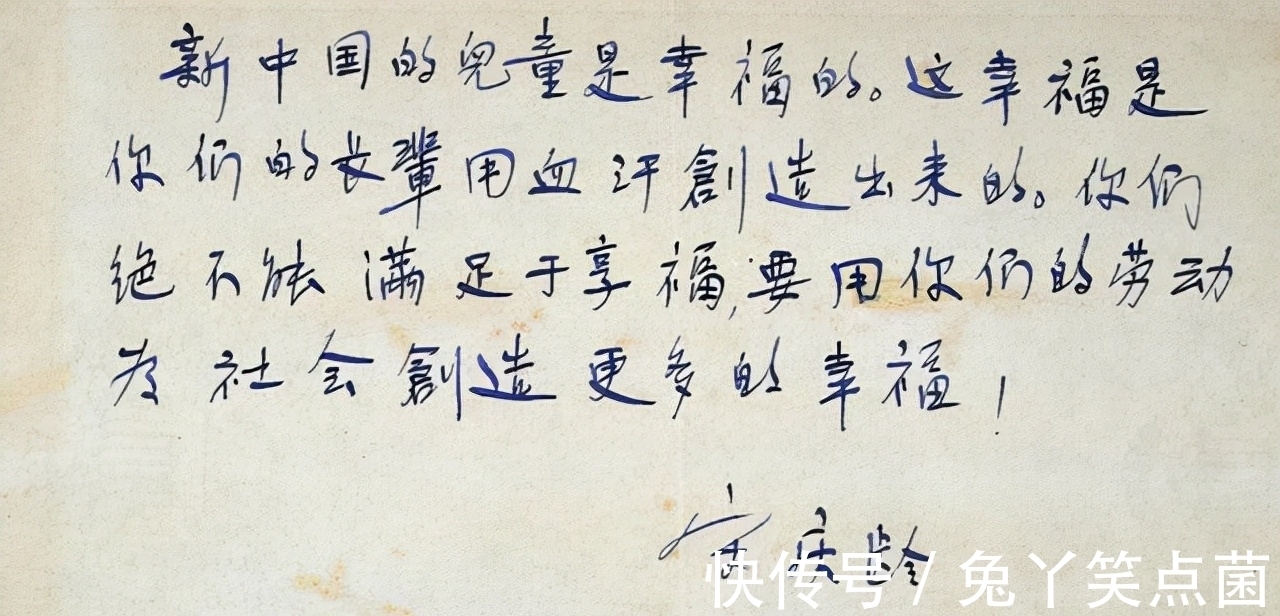 新中国的兒童是幸福的。这幸福是
你们的长輩用血汗創造出来的。你们
绝不能满足于享福,要用你们的劳动
为社会創造更多的幸福!
宋庆龄
快传号 / 兔丫笑点菌